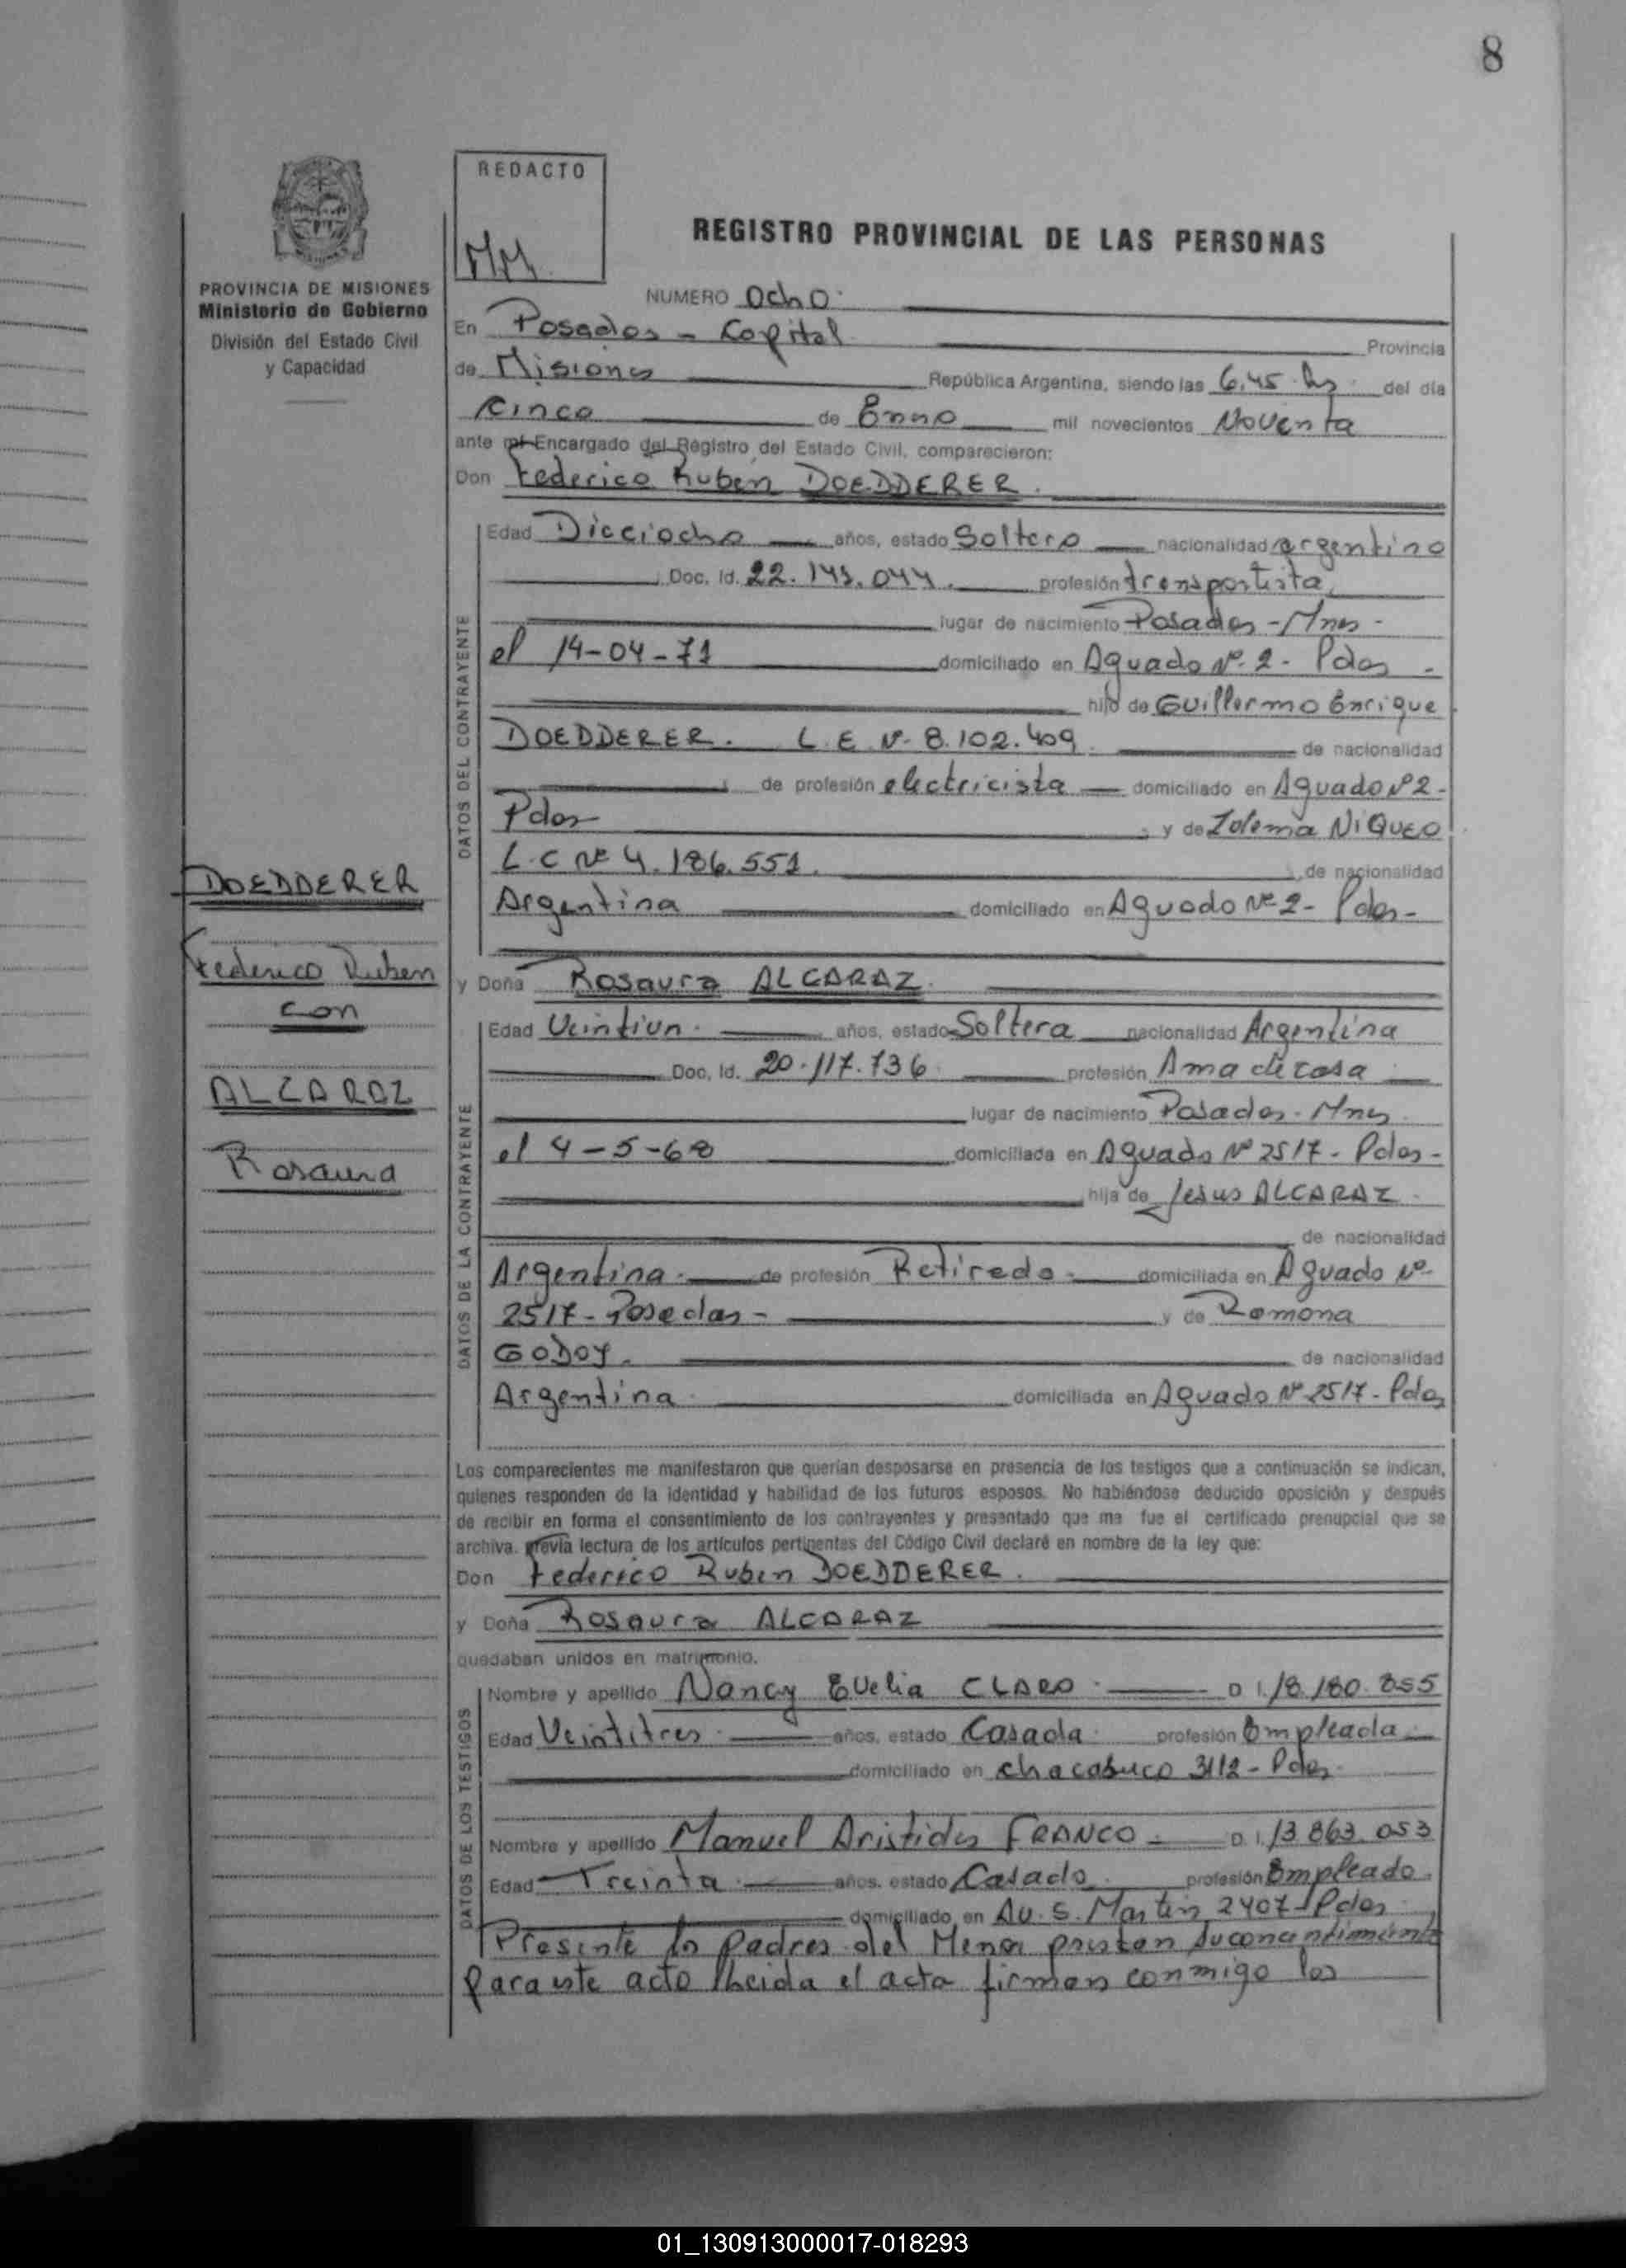 8
REDACTO
MM.
REGISTRO PROVINCIAL DE LAS PERSONAS
PROVINCIA DE MISIONES
Ministerio de Gobierno
División del Estado Civil
y Capacidad
NUMERO Ocho
En Posadas - Capital Provincia
de Misiones República Argentina, siendo las 6,45 hs. del día
Cinco de Enero mil novecientos Noventa
ante mí Encargado del Registro del Estado Civil, comparecieron:
Don Federico Ruben DOEDDERER.
DATOS DEL CONTRAYENTE
Edad Dieciocho años, estado Soltero nacionalidad argentino
Doc. Id. 22.143.044. profesión transportista
lugar de nacimiento Posadas - Mnes -
el 14-04-71 domiciliado en Aguado Nº 2 - Pdas -
hijo de Guillermo Enrique
DOEDDERER. L.E Nº 8.102.409. de nacionalidad
de profesión electricista domiciliado en Aguado Nº 2 -
Pdas y de Zulema NIQUEO
L.C Nº 4.186.551. de nacionalidad
Argentina domiciliado en Aguado Nº 2 - Pdas -
DOEDDERER
Federico Ruben
con
ALCARAZ
Rosaura
y Doña Rosaura ALCARAZ.
DATOS DE LA CONTRAYENTE
Edad Veintiun. años, estado Soltera nacionalidad Argentina
Doc. Id. 20.117.736. profesión Ama de casa
lugar de nacimiento Posadas - Mnes
el 4-5-68 domiciliada en Aguado Nº 2517 - Pdas -
hija de Jesus ALCARAZ
de nacionalidad
Argentina. de profesión Retirado. domiciliada en Aguado Nº
2517 - Posadas - y de Ramona
GODOY. de nacionalidad
Argentina domiciliada en Aguado Nº 2517 - Pdas
Los comparecientes me manifestaron que querían desposarse en presencia de los testigos que a continuación se indican,
quienes responden de la identidad y habilidad de los futuros esposos. No habiéndose deducido oposición y después
de recibir en forma el consentimiento de los contrayentes y presentado que me fue el certificado prenupcial que se
archiva. previa lectura de los artículos pertinentes del Código Civil declaré en nombre de la ley que:
Don Federico Ruben DOEDDERER.
y Doña Rosaura ALCARAZ
quedaban unidos en matrimonio.
DATOS DE LOS TESTIGOS
Nombre y apellido Nancy Evelia CLARO. D.I. 18.180.855
Edad Veintitres. años, estado Casada. profesión Empleada.
domiciliado en Chacabuco 3112 - Pdas
Nombre y apellido Manuel Aristides FRANCO. D.I. 13.863.053
Edad Treinta años, estado Casado. profesión Empleado.
domiciliado en Av. S. Martin 2407 - Pdas
Presente los Padres del Menor prestan su consentimiento
para este acto lheida el acta firman conmigo los
01_130913000017-018293